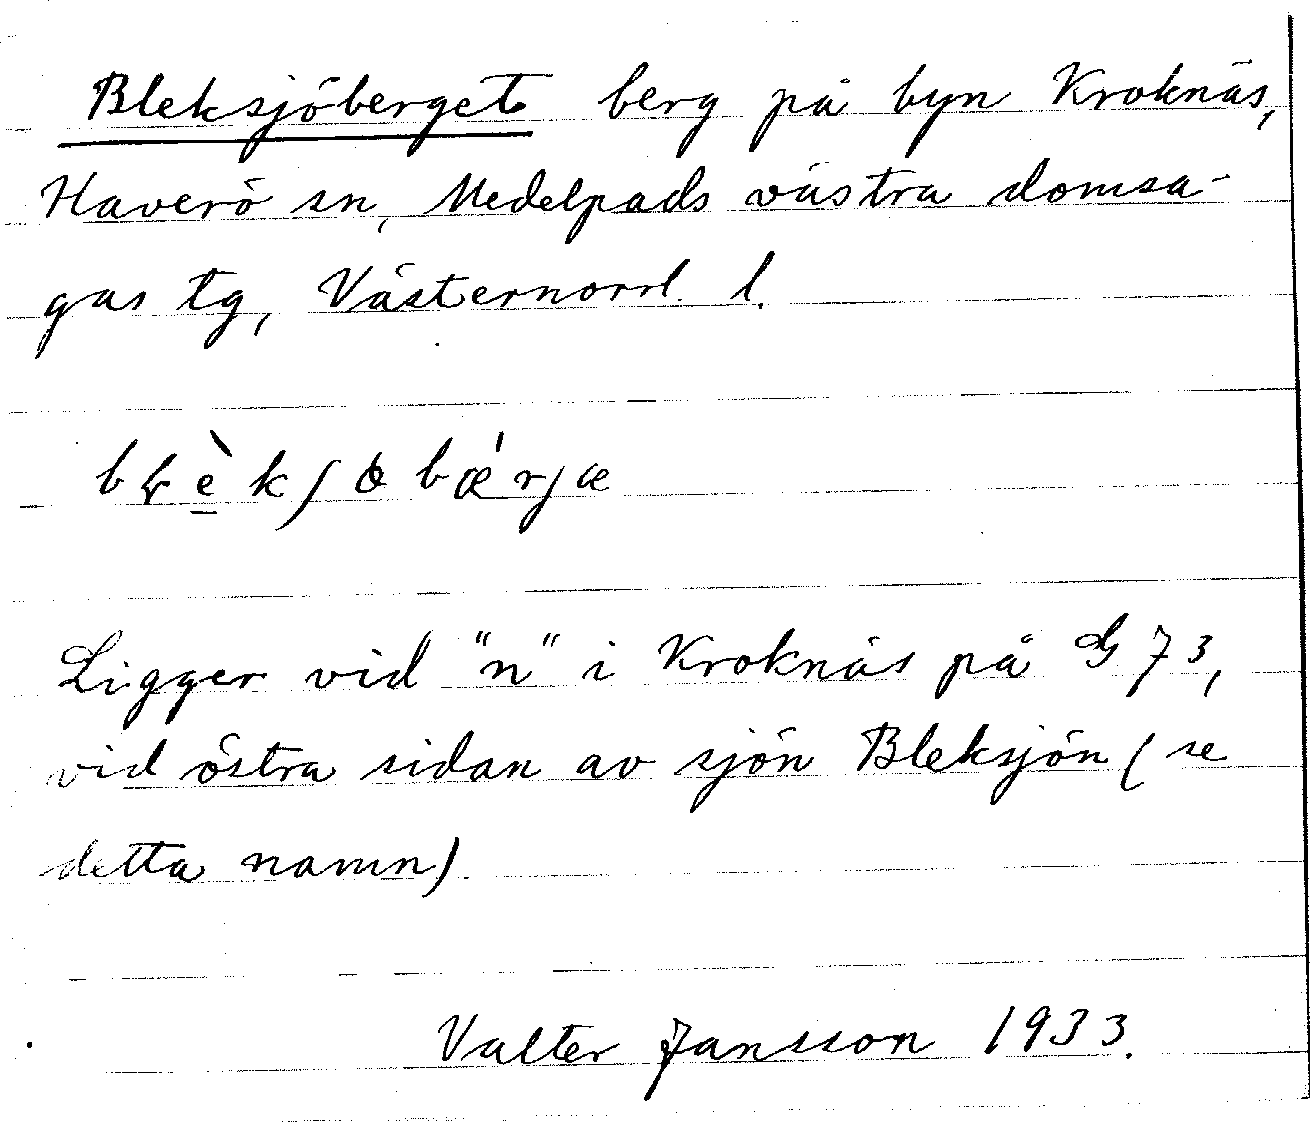 Bleksjöberget berg på byn Kroknäs,
Haverö sn, Medelpads västra domsa-
gas tg, Västernorrl. l.
Ligger vid "n" i Kroknäs på G 73,
vid östra sidan av sjön Bleksjön (se
detta namn).
Valter Jansson 1933.